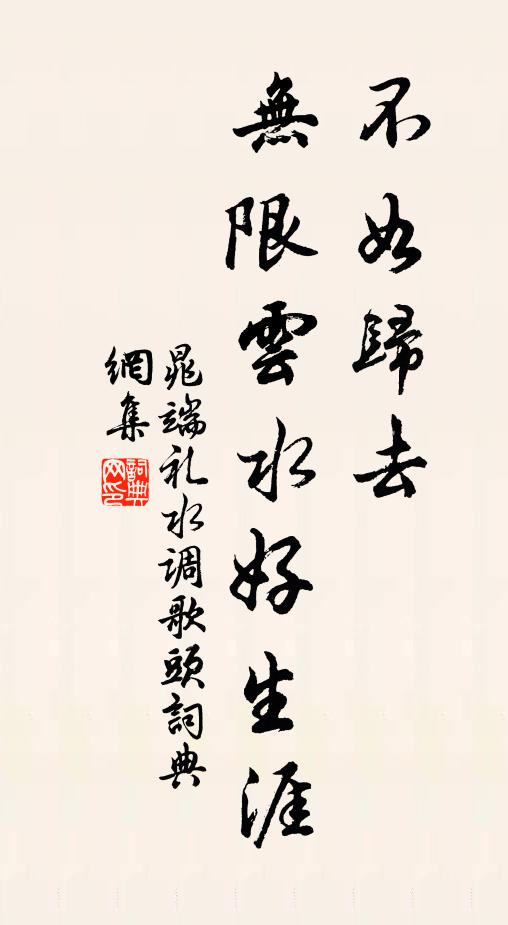 不如歸去
無限雲水好生涯
晁端礼水调歌頭詞典
網集
詞典
网印